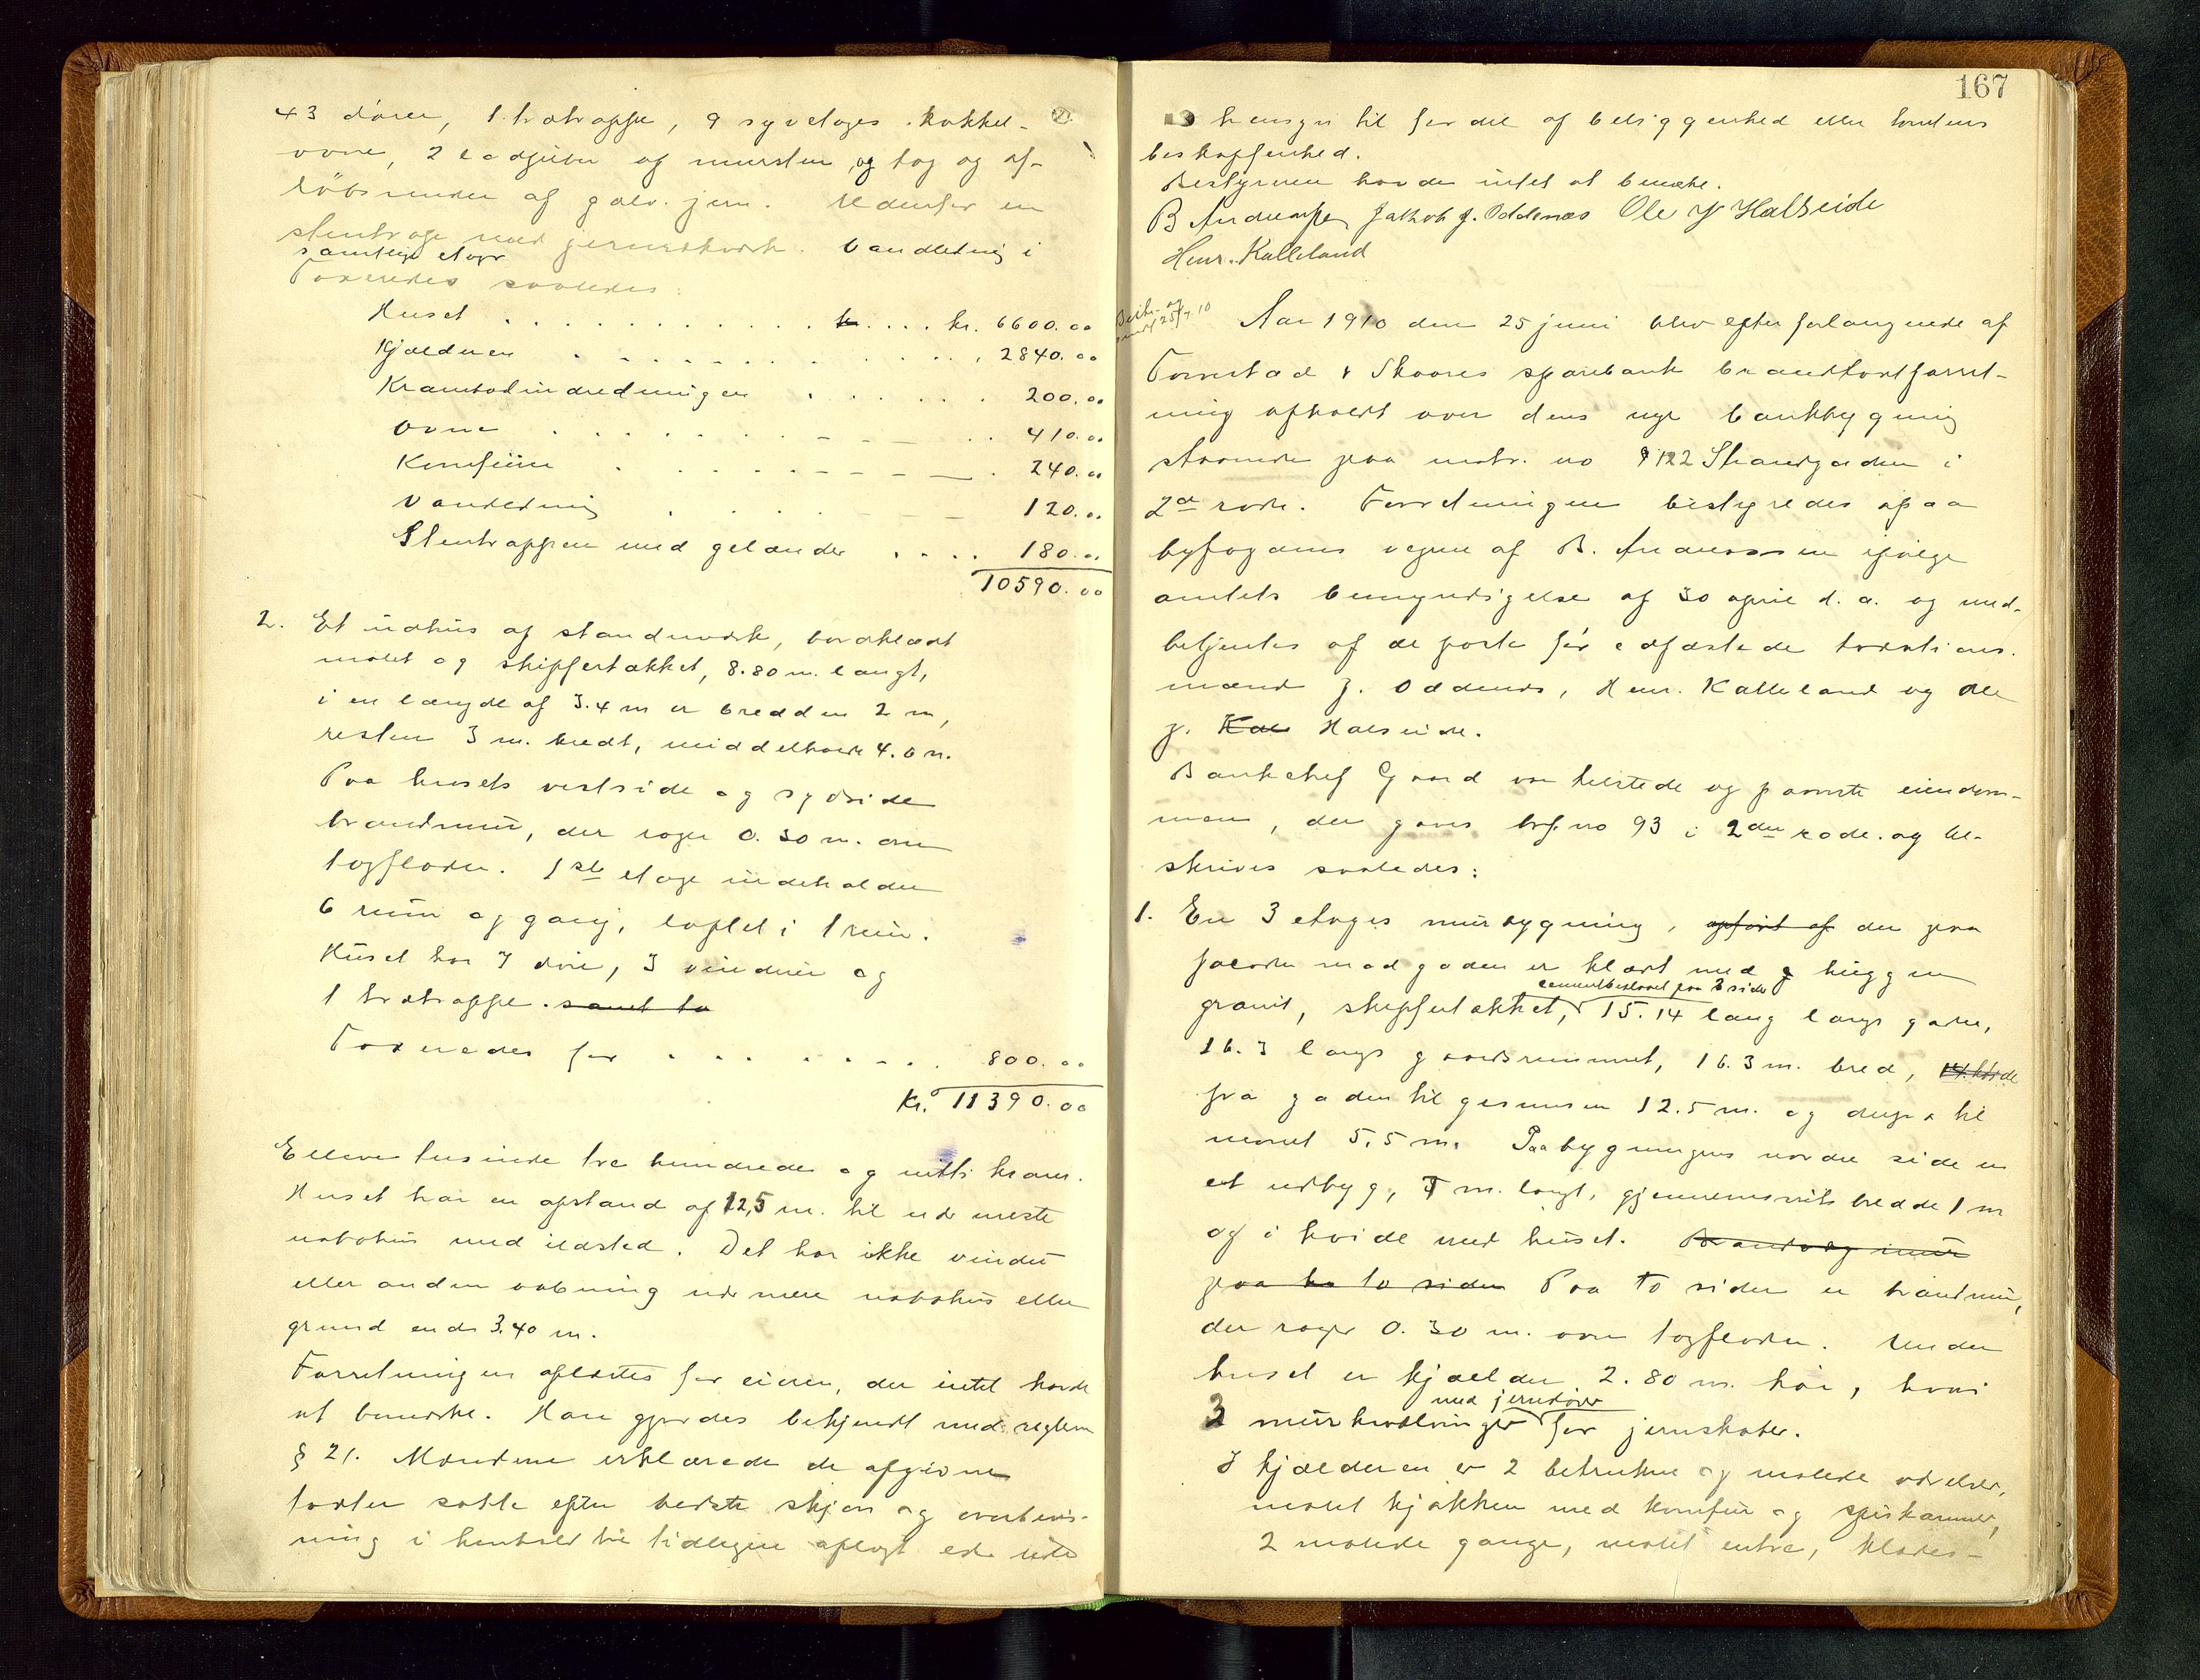 43 dører, 1 trætrappe, 9 syvetages kakkel-
ovne, 2 ladpiber af mursten og tag og af-
løbsrender af galv. jern. Udenfor en
stentrappe med jernrækværk. Vandledning i
samtlige etager
Taxeredes saaledes:
Huset . . . . . . . . . . kr. 6600.00
Kjælderen . . . . . . . . . 2840.00
Krambodindredningen . . . . . 200.00
Ovne . . . . . . . . . . 410.00
Komfurer . . . . . . . . 240.00
Vandledning . . . . . . . 120.00
Stentrappen med gelænder . . . . 180.00
10590.00
2. Et udhus af standerverk, bordklædt
malet og skifertækket, 8.80 m. langt,
i en længde af 3.4 m er bredden 2 m,
resten 3 m. bredt, middelhøide 4.6 m.
Paa husets vestside og sydside
brandmur, der rager 0.30 m. over
tagfladen. 1ste etage indeholder
6 rum og gang, loftet i 1 rum.
Huset har 7 døre, 3 vinduer og
1 trætrappe. samt to
Taxeredes for . . . . . . . 800.00
Kr. 11390.00
Elleve tusinde tre hundrede og nitti kroner.
Huset har en afstand af 12,5 m. til nærmeste
nabohus med ildsted. Det har ikke vindu
eller anden aabning nærmere nabohus eller
grund end 3.40 m.
Forretningen oplæstes for eieren, der intet havde
at bemerke. Han gjordes bekjendt med reglem
§ 21. Mændene erklærede de afgivne
taxter satte efter bedste skjøn og overbevis-
ning i henhold til tidligere aflagt ed uden
167
hensyn til fordel af beliggenhed eller tomtens
beskaffenhed.
Bestyreren havde intet at bemerke.
B Andersen Jakob J. Oddenæs Ole J Halseide
Henr. Kalleland
25/7 10
Aar 1910 den 25 juni blev efter forlangende af
Torvestad & Skaares sparebank brandtaxtforret-
ning afholdt over dens nye bankbygning
staaende paa matr. no 9122 Strandgaden i
2den rode. Forretningen bestyredes paa
byfogdens vegne af B. Andersen ifølge
amtets bemyndigelse af 30 april d. a. og med-
betjentes af de forte før edfæstede taxations-
mænd J. Oddenæs, Henr. Kalleland og Ole
J. Kal Halseide.
Bankchef Gaard var tilstede og paaviste eiendom-
men, der gaves brf. no 93 i 2den rode og be-
skrives saaledes:
1. En 3 etages murbygning, opført af der paa
facaden mod gaden er klædt med huggen
cementbeslaaet paa 3 sider
granit, skifertækket, 15.14 lang langs gaden,
16.3 langs gaardsrummet, 16.3 m. bred, 14. høide
fra gaden til gesimsen 12.5 m. og derfra til
mønet 5.5 m. Paa bygningens nordre side er
et udbyg, 7 m. langt, gjennemsnits bredde 1 m
og i høide med huset. Brandvæg mur
paa to to sider Paa to sider er brandmur,
der rager 0.30 m. over tagfladen. Under
huset er kjælder 2.80 m. høi, hvori
med jerndører
3 murhvælvinger for jernskabe.
I kjælderen er 2 betrukne og malede værelser,
malet kjøkken med komfur og spiskammer,
2 malede gange, malet entre, klædes-